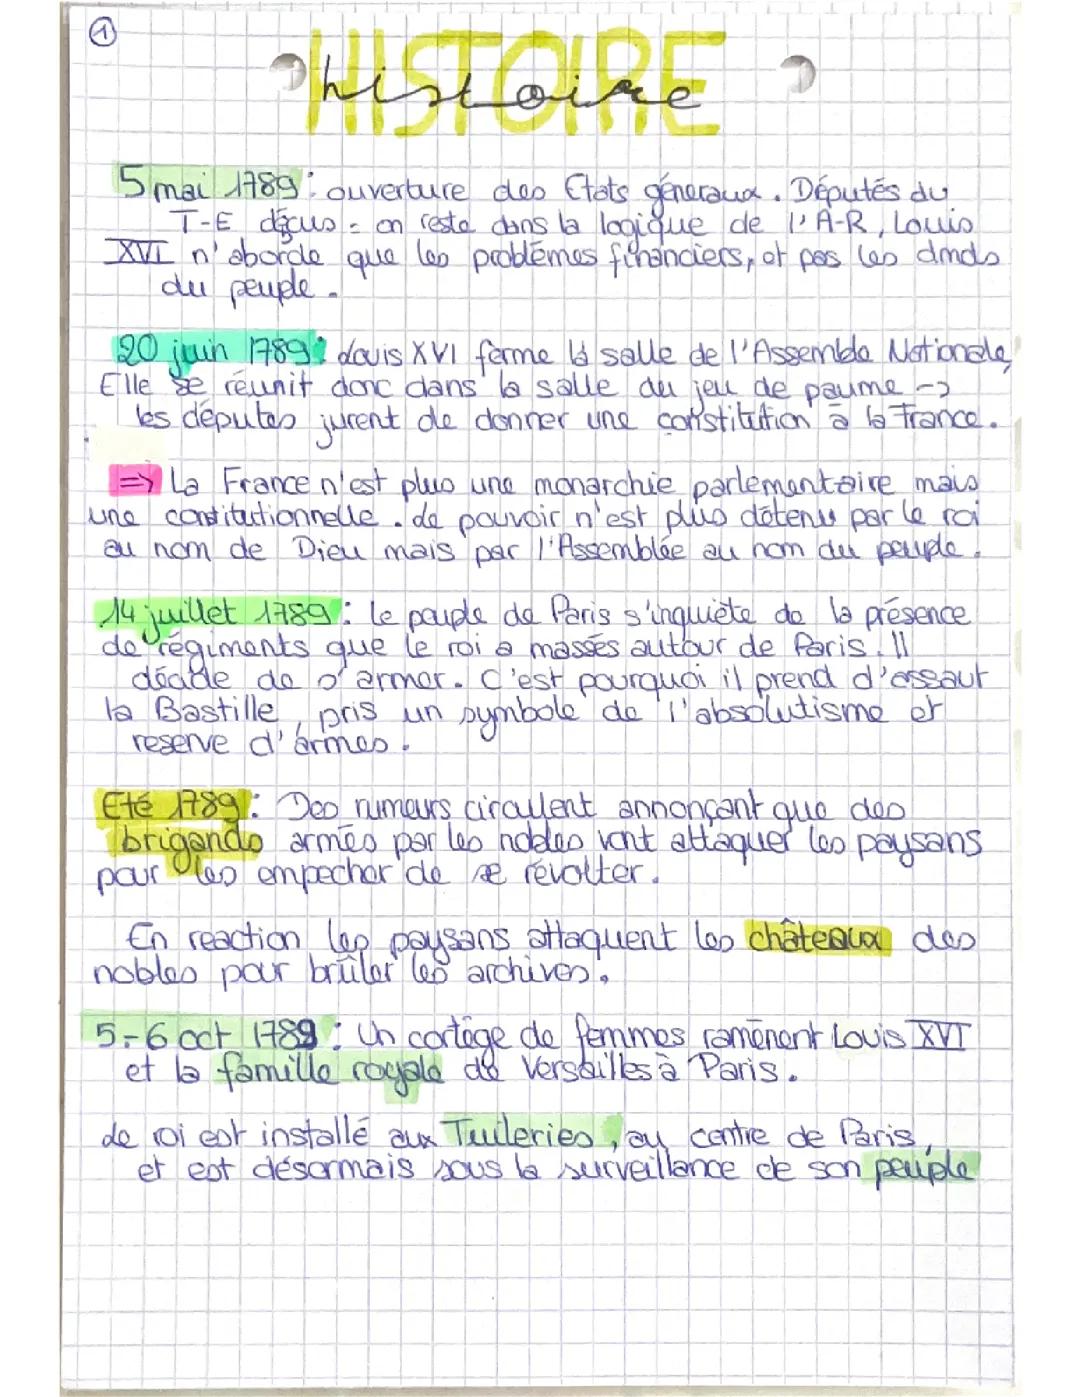 1
HISTOIRE
histoire
5 mai 1789 : ouverture des Etats généraux. Députés du
T-E déçus = on reste dans la logique de l'A-R, Louis
XVI n'aborde que les problèmes financiers, et pas les dmds
du peuple.
20 juin 1789 : Louis XVI ferme la salle de l'Assemblée Nationale,
Elle se réunit donc dans la salle du jeu de paume ->
les députés jurent de donner une constitution à la France.
=> La France n'est plus une monarchie parlementaire mais
une constitutionnelle. Le pouvoir n'est plus détenu par le roi
au nom de Dieu mais par l'Assemblée au nom du peuple.
14 juillet 1789 : le peuple de Paris s'inquiète de la présence
de régiments que le roi a massés autour de Paris. Il
décide de s'armer. C'est pourquoi il prend d'assaut
la Bastille, pris un symbole de l'absolutisme et
reserve d'armes.
Eté 1789 : Des rumeurs circulent annonçant que des
brigands armés par les nobles vont attaquer les paysans
pour les empecher de se révolter.
En reaction les paysans attaquent les châteaux des
nobles pour brûler les archives.
5-6 oct 1789 : Un cortège de femmes ramènent Louis XVI
et la famille royale de Versailles à Paris.
Le roi est installé aux Tuileries, au centre de Paris,
et est désormais sous la surveillance de son peuple